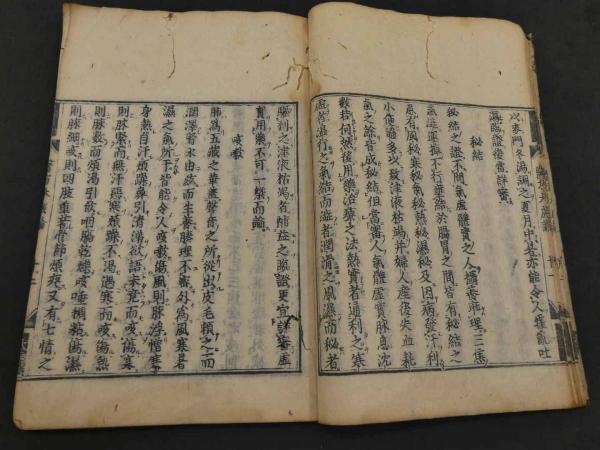 以麥門冬湯調之夏月中暑亦能令人霍亂吐
瀉臨證後當詳審
秘結
秘結之證不問氣虛體實之人攝養乖理三焦
氣澁運掉不行壅結於腸胃之間皆有秘結之
患有風秘寒秘氣秘熱秘濕秘及因病發汗利
小便過多以致津液枯竭并婦人產後失血耗
氣之餘皆成秘結但當審人氣體虛實脉息沉
數若何然後用藥治療之法熱實者通利之寒
虛者滋行之氣結而澁者潤滑之風濕而秘者
驅利之津液枯竭者補益之臨證更宜詳審虛
實用藥不可一槩而論
咳嗽
肺爲五藏之華蓋聲音之所從出皮毛頼之而
潤澤腎水由玆而生養腠理不密外爲風寒暑
濕之氣所干皆能令人咳嗽傷風則脉浮憎寒
身熱自汗煩躁鼻引清涕欲語未竟而咳傷寒
則脉緊而無汗惡寒煩躁不渴遇寒而咳傷熱
則脉數而煩渴引飲咽膈乾燥咳唾稠粘傷濕
則脉細咳則四肢重著骨節煩疼又有七情之